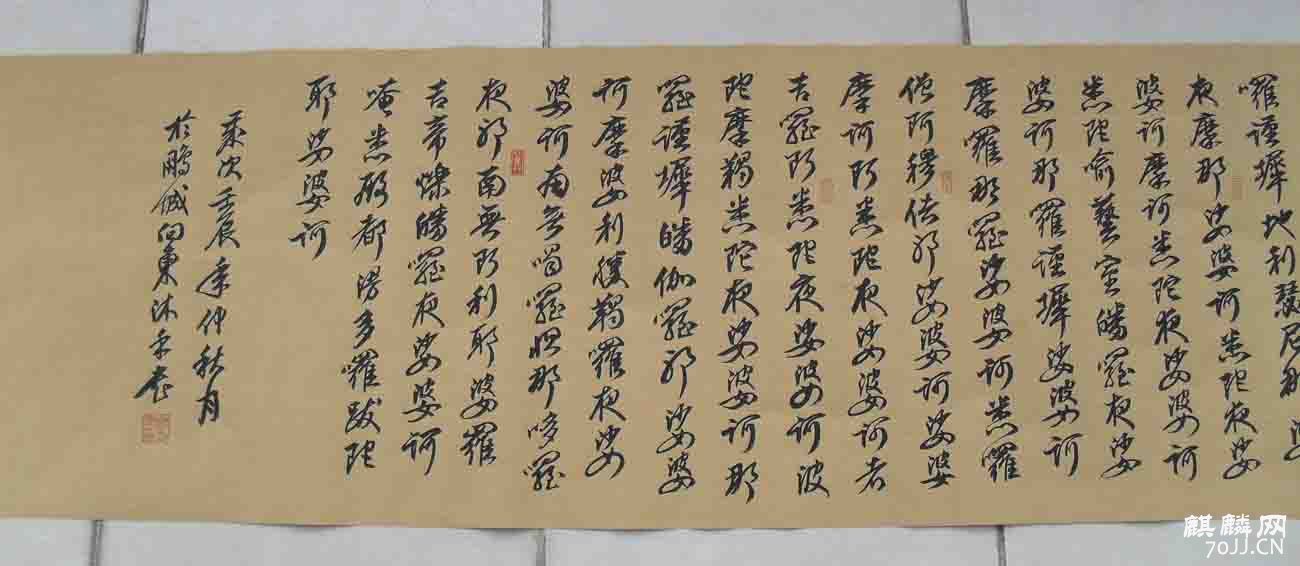 囉謹墀地利瑟尼那
夜摩那娑婆訶悉陀夜娑
婆訶摩訶悉陀夜娑婆訶
悉陀喻藝室皤羅夜娑
婆訶那羅謹墀娑婆訶
摩囉那羅娑婆訶悉囉
僧阿穆佉耶娑婆訶娑婆
摩訶阿悉陀夜娑婆訶者
吉羅阿悉陀夜娑婆訶波
陀摩羯悉陀夜娑婆訶那
羅謹墀皤伽羅耶娑婆
訶摩婆利勝羯羅夜娑
婆訶南無喝羅怛那哆羅
夜耶南無阿利耶婆羅
吉帝爍皤羅夜娑婆訶
唵悉殿都漫多囉跋陀
耶娑婆訶
歲次壬辰年仲秋月
於鵬城向東沐手書
麒麟网
70JJ.CN